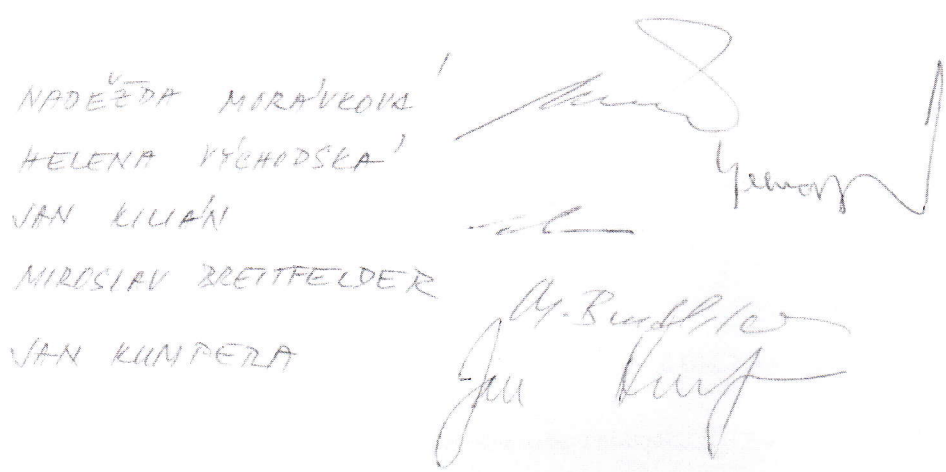 NADĚŽDA MORÁVKOVÁ
HELENA VÝCHODSKÁ
JAN KILIÁN
MIROSLAV BREITFELDER
M. Breitfelder
JAN KUMPERA
Jan Kump